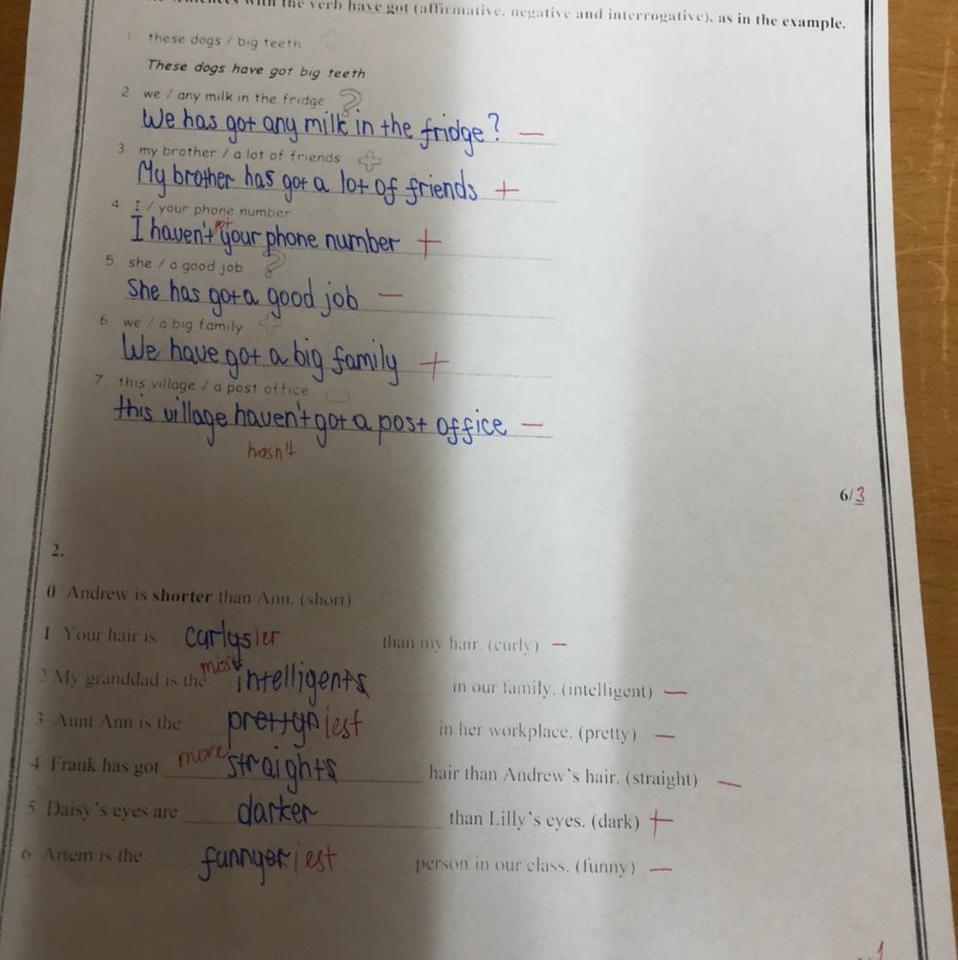 sentences with the verb have got (affirmative, negative and interrogative), as in the example.
1 these dogs / big teeth +
These dogs have got big teeth
2 we / any milk in the fridge ?
We has got any milk in the fridge? —
3 my brother / a lot of friends +
My brother has got a lot of friends +
4 I / your phone number -
got
I haven't your phone number +
5 she / a good job ?
She has got a good job —
6 we / a big family +
We have got a big family +
7 this village / a post office -
this village haven't got a post office —
hasn't
6/3
2.
0 Andrew is shorter than Ann. (short)
1 Your hair is curlys ier than my hair. (curly) —
most
2 My granddad is the intelligents in our family. (intelligent) —
3 Aunt Ann is the iest in her workplace. (pretty) —
more
4 Frank has got straights hair than Andrew's hair. (straight) —
5 Daisy's eyes are darker than Lilly's eyes. (dark) +
6 Artem is the funnyer iest person in our class. (funny) —
1